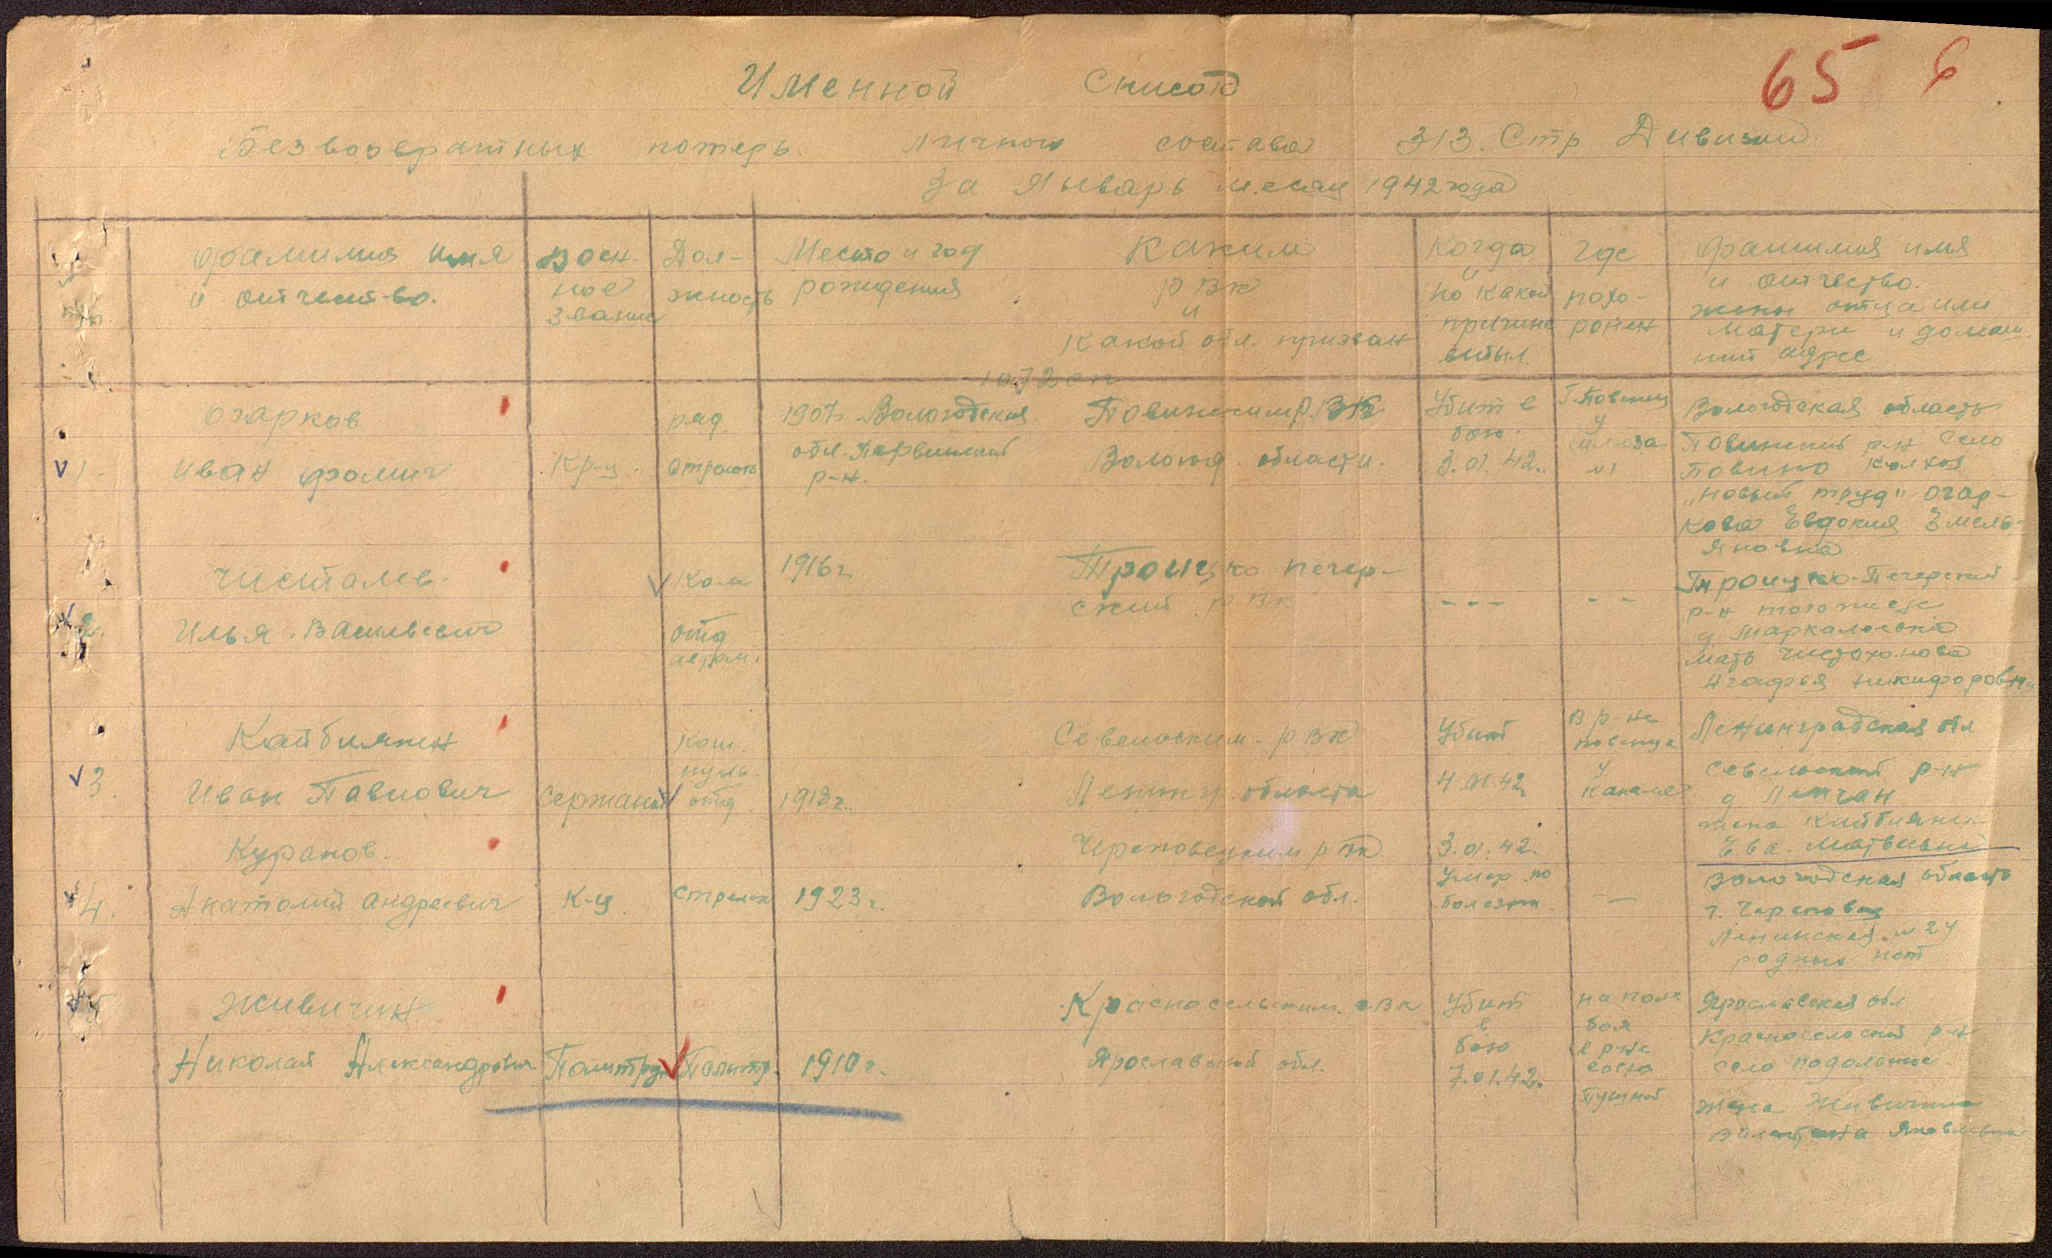 65 6
Именной Список
Безвозвратных потерь личного состава 313. Стр Дивизии
За Январь месяц 1942 года
фамилия имя
и отчество.
Воен-
ное
звание
Дол-
жность
Место и год
рождения
Каким
РВК
и
какой обл. призван
Когда
и
по какой
причине
выбыл
где
похо-
ронен
фамилия имя
и отчество.
жены отца или
матери и домаш
ний адрес
1072 сп
1.
Огарков
Иван фомич
Кр-ц.
ряд.
1907г. Вологодская
обл.
р-н.
Повинским РВК
Вологод. области.
Убит в
бою.
3.01.42.
г. Повенец
у
шлюза
№1
Вологодская область
Повинский р-н село
Повино колхоз
"новый труд" Огар-
кова Евдокия Емель-
яновна
2.
Чисталев.
Илья Васильевич
Ком
отд
1916 г.
Троицко печер-
ский РВК
- - -
- -
Троицко-Печерский
р-н
д
мать
Агафья Никифоровна
3.
Кайбияйнен
Иван Павлович
сержант
Ком.
отд
1918 г.
РВК
Ленингр. области
Убит
4.01.42
В р-не
повенца
у
канала
Ленинградская обл
р-н
д
жена
Ева Матвеевна
4.
Куранов.
Анатолий Андреевич
К-ц
стрелок
1923 г.
Череповецким РВК
Вологодской обл.
3.01.42.
Умер по
болезни
—
Вологодская область
г. Череповец
Ленинская №24
родных нет
5
Живичин
Николай Александрович
Политрук
Политр.
1910 г.
Красносельским РВК
Ярославской обл.
Убит
в
бою
7.01.42.
на поле
боя
в р-не
Ярославская обл
Красносельский р-н
село Подольское
жена Живичина
Валентина Яковлевна